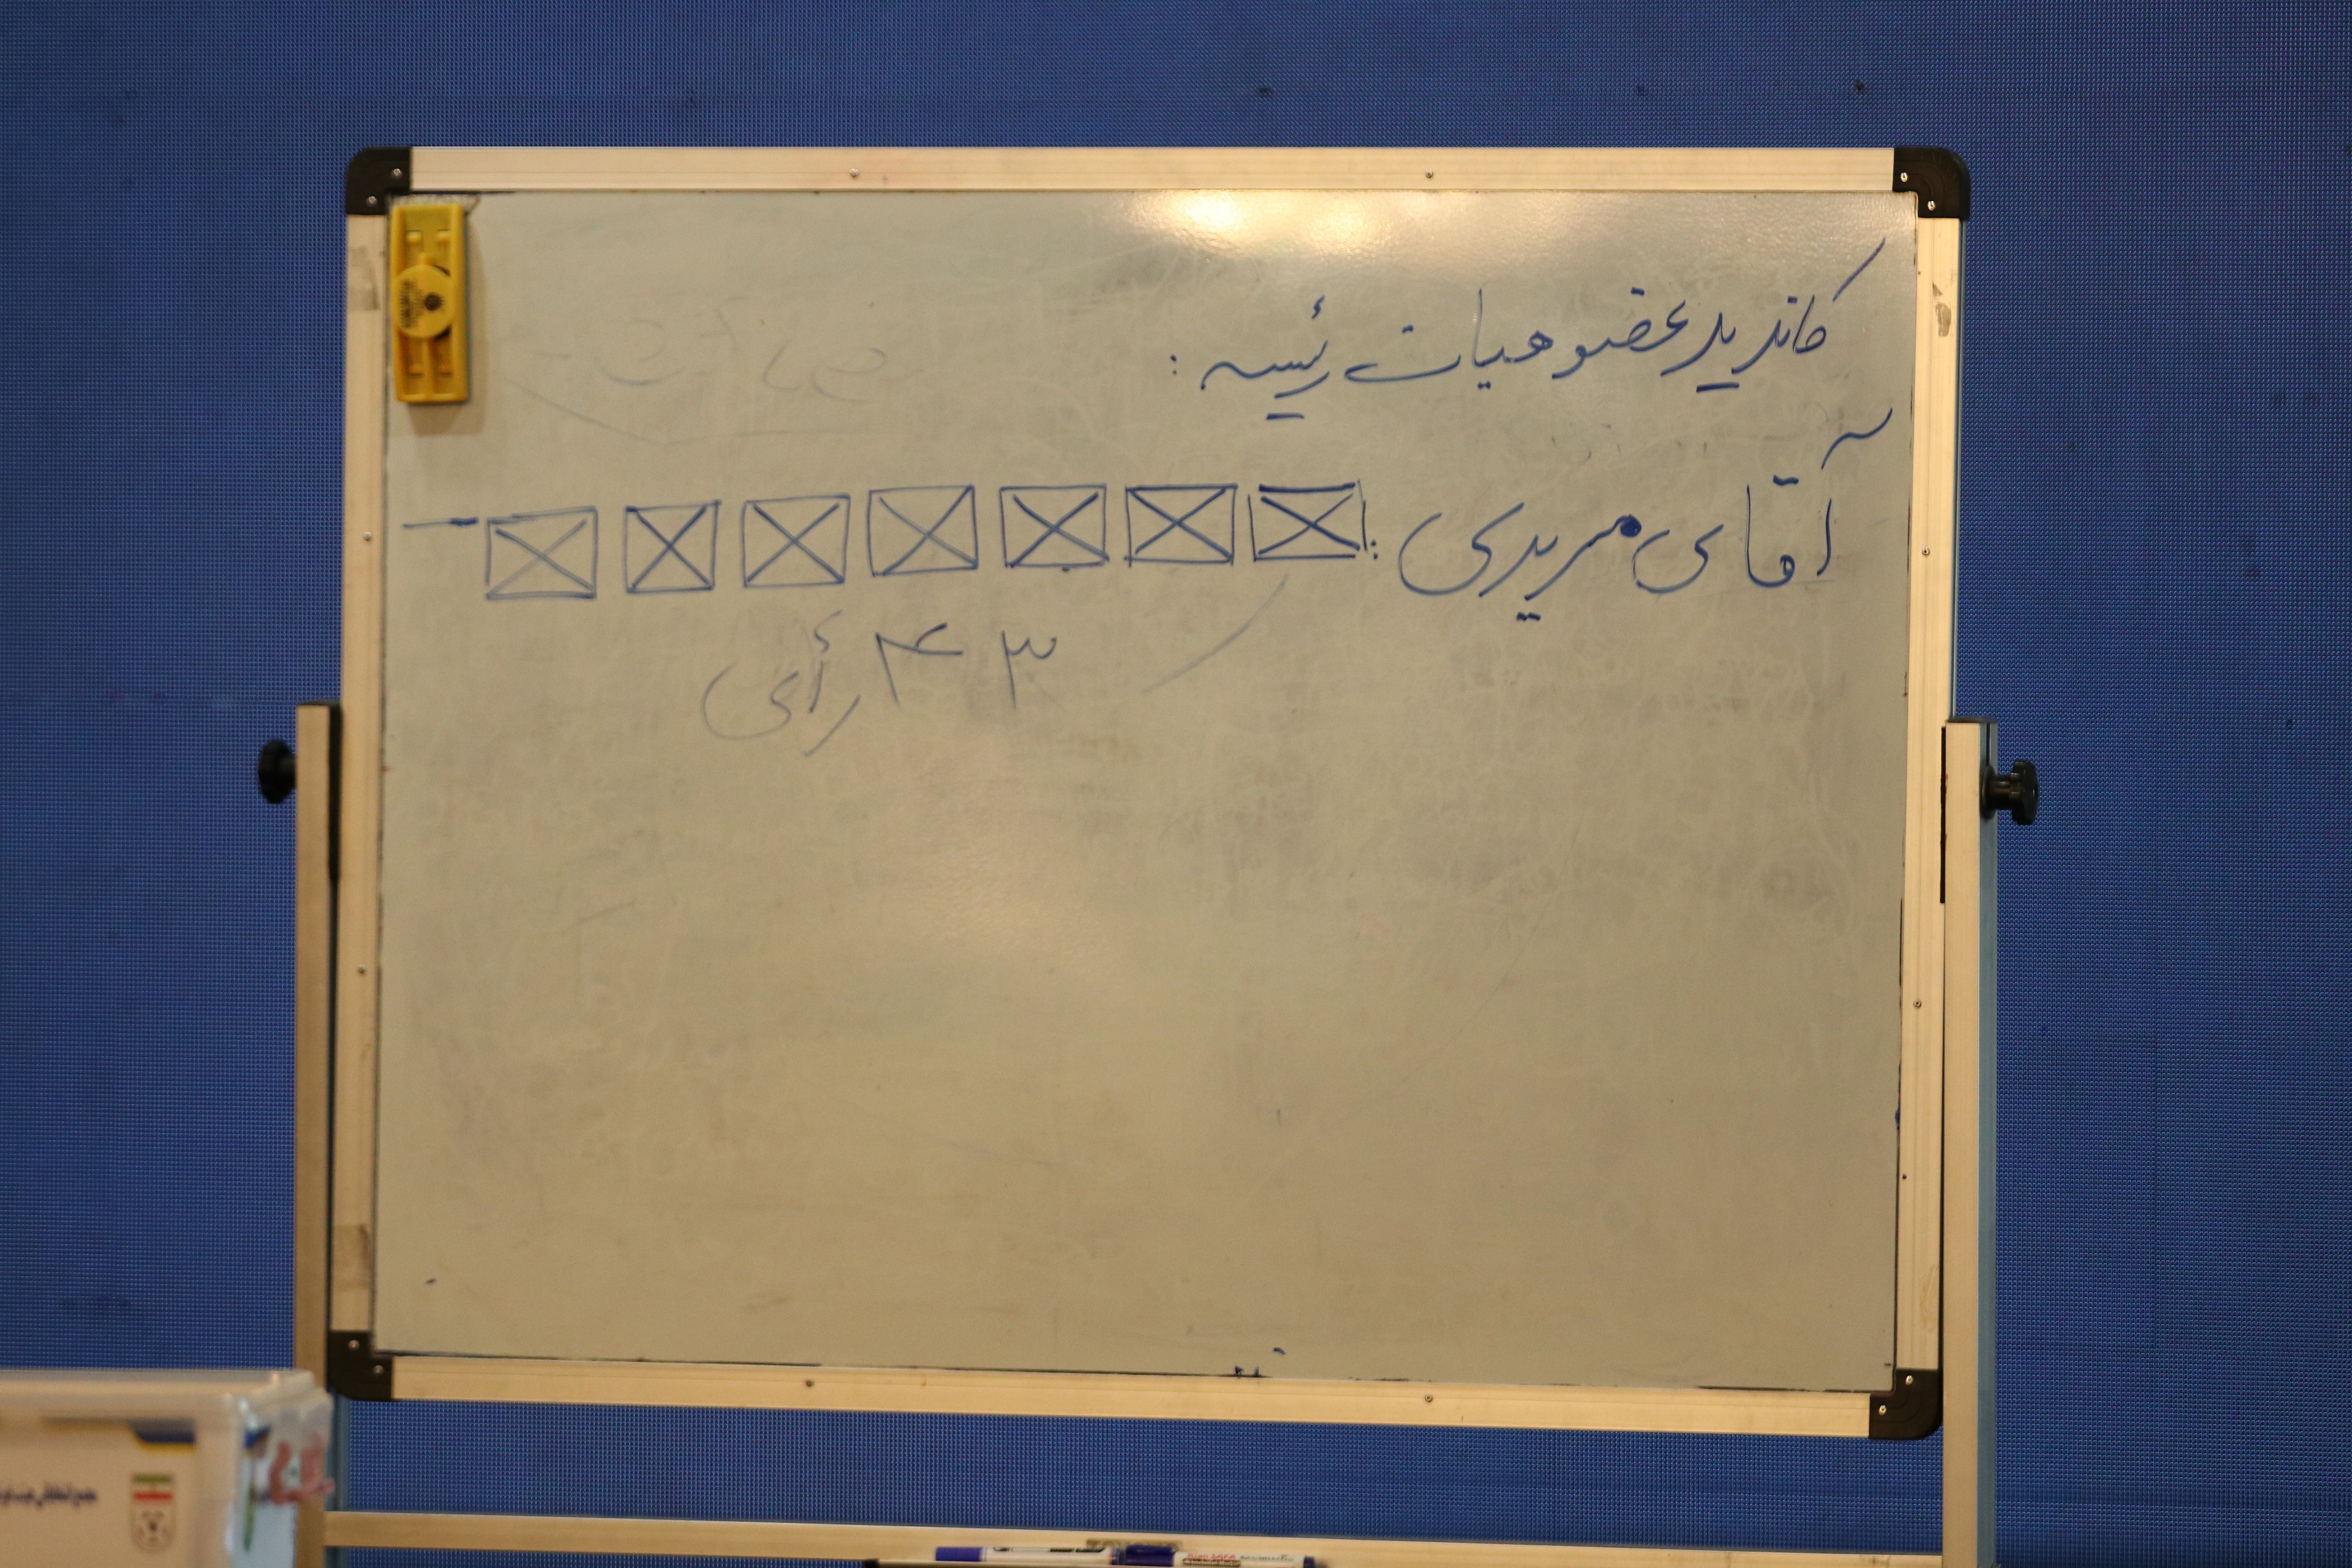 کاندید عضو هیات رئیسه :
آقای مریدی :
۳۴ رأی